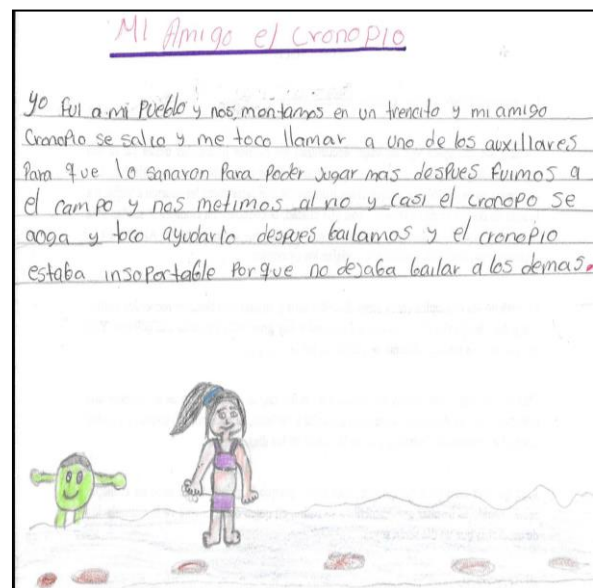 MI Amigo el cronopio
yo fui a mi Pueblo y nos montamos en un trencito y mi amigo
Cronopio se salio y me toco llamar a uno de los auxiliares
Para que lo sanaron Para Poder Jugar mas despues fuimos a
el campo y nos metimos al rio y casi el cronopo se
aoga y toco ayudarlo despues bailamos y el cronopio
estaba insoportable Porque no dejaba bailar a los demas.